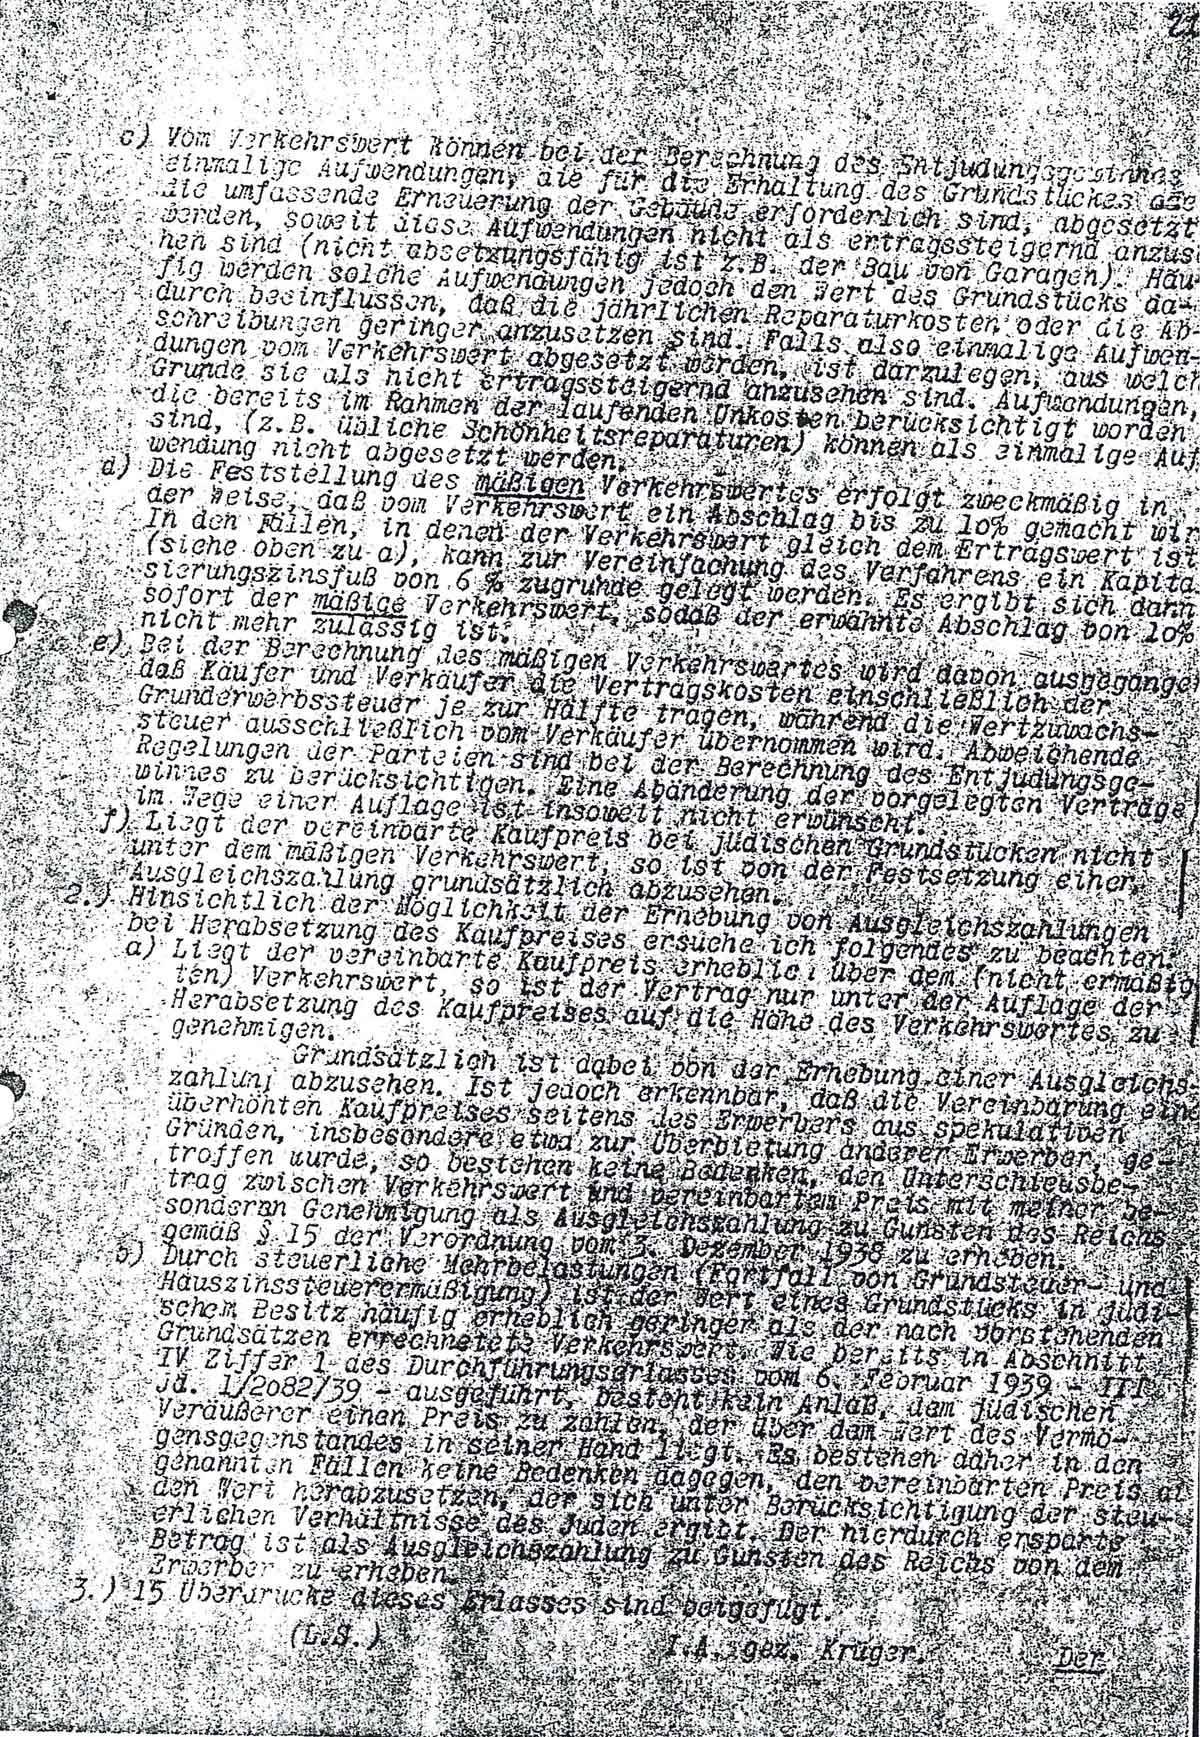 22
c) Vom Verkehrswert können bei der Berechnung des Entjudungsgewinnes
einmalige Aufwendungen, die für die Erhaltung des Grundstückes
die umfassende Erneuerung der Gebäude erforderlich sind, abgesetzt
werden, soweit diese Aufwendungen nicht als ertragssteigernd anzus
hen sind (nicht absetzungsfähig ist z.B. der Bau von Garagen). Häu-
fig werden solche Aufwendungen jedoch den Wert des Grundstücks da-
durch beeinflussen, daß die jährlichen Reparaturkosten oder die Ab
schreibungen geringer anzusetzen sind. Falls also einmalige Aufwen-
dungen vom Verkehrswert abgesetzt werden, ist darzulegen, aus welch
Grunde sie als nicht ertragssteigernd anzusehen sind. Aufwendungen,
die bereits im Rahmen der laufenden Unkosten berücksichtigt worden
sind, (z.B. übliche Schönheitsreparaturen) können als einmalige Auf
wendung nicht abgesetzt werden.
d) Die Feststellung des mäßigen Verkehrswertes erfolgt zweckmäßig in
der Weise, daß vom Verkehrswert ein Abschlag bis zu 10% gemacht wir
In den Fällen, in denen der Verkehrswert gleich dem Ertragswert ist
(siehe oben zu a), kann zur Vereinfachung des Verfahrens ein Kapita
sierungszinsfuß von 6 % zugrunde gelegt werden. Es ergibt sich dann
sofort der mäßige Verkehrswert, sodaß der erwähnte Abschlag von 10%
nicht mehr zulässig ist.
e) Bei der Berechnung des mäßigen Verkehrswertes wird davon ausgegange
daß Käufer und Verkäufer die Vertragskosten einschließlich der
Grunderwerbssteuer je zur Hälfte tragen, während die Wertzuwachs-
steuer ausschließlich vom Verkäufer übernommen wird. Abweichende
Regelungen der Parteien sind bei der Berechnung des Entjudungsge-
winnes zu berücksichtigen. Eine Abänderung der vorgelegten Verträge
im Wege einer Auflage ist insoweit nicht erwünscht.
f) Liegt der vereinbarte Kaufpreis bei jüdischen Grundstücken nicht
unter dem mäßigen Verkehrswert, so ist von der Festsetzung einer
Ausgleichszahlung grundsätzlich abzusehen.
2.) Hinsichtlich der Möglichkeit der Erhebung von Ausgleichszahlungen
bei Herabsetzung des Kaufpreises ersuche ich folgendes zu beachten:
a) Liegt der vereinbarte Kaufpreis erheblich über dem (nicht ermäßig
ten) Verkehrswert, so ist der Vertrag nur unter der Auflage der
Herabsetzung des Kaufpreises auf die Höhe des Verkehrswertes zu
genehmigen.
Grundsätzlich ist dabei von der Erhebung einer Ausgleichs-
zahlung abzusehen. Ist jedoch erkennbar, daß die Vereinbarung eine
überhöhten Kaufpreises seitens des Erwerbers aus spekulativen
Gründen, insbesondere etwa zur Überbietung anderer Erwerber, ge-
troffen wurde, so bestehen keine Bedenken, den Unterschiedsbe-
trag zwischen Verkehrswert und vereinbartem Preis mit meiner be-
sonderen Genehmigung als Ausgleichszahlung zu Gunsten des Reichs
gemäß § 15 der Verordnung vom 3. Dezember 1938 zu erheben.
b) Durch steuerliche Mehrbelastungen (Fortfall von Grundsteuer- und
Hauszinssteuerermäßigung) ist der Wert eines Grundstücks in jüdi-
schem Besitz häufig erheblich geringer als der nach vorstehenden
Grundsätzen errechnete Verkehrswert. Wie bereits in Abschnitt
IV Ziffer 1 des Durchführungserlasses vom 6. Februar 1939 - III
Jd. 1/2082/39 - ausgeführt, besteht kein Anlaß, dem jüdischen
Veräußerer einen Preis zu zahlen, der über dem Wert des Vermö-
gensgegenstandes in seiner Hand liegt. Es bestehen daher in den
genannten Fällen keine Bedenken dagegen, den vereinbarten Preis a
den Wert herabzusetzen, der sich unter Berücksichtigung der steu-
erlichen Verhältnisse des Juden ergibt. Der hierdurch ersparte
Betrag ist als Ausgleichszahlung zu Gunsten des Reichs von dem
Erwerber zu erheben.
3.) 15 Überdrucke dieses Erlasses sind beigefügt.
(L.S.)
I.A. gez. Krüger.
Der